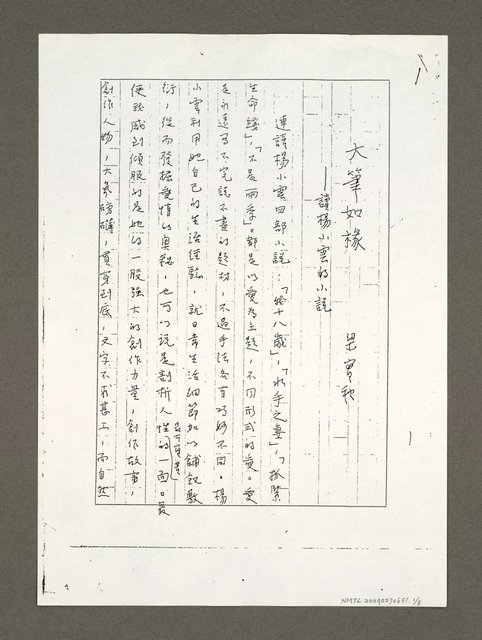 大筆如椽
—讀楊小雲的小說
梁實秋
連讀楊小雲四部小說:「她十八歲」,「水手之妻」,「抓緊
生命線」,「不是雨季」。都是以愛為主題,不同形式的愛。愛
是永遠寫不完說不盡的題材,不過手法各有巧妙不同。楊
小雲利用她自己的生活經驗,就日常生活細節加以舖敘敷
衍,從而發掘愛情的奧秘,也可以說是剖析人性的一面。最
使我感到傾服的是她的一股強大的創作力量,創作故事,
創作人物,大氣磅礡,貫穿到底,文字不求甚工,而自然
NMTL 20090270651 1/8